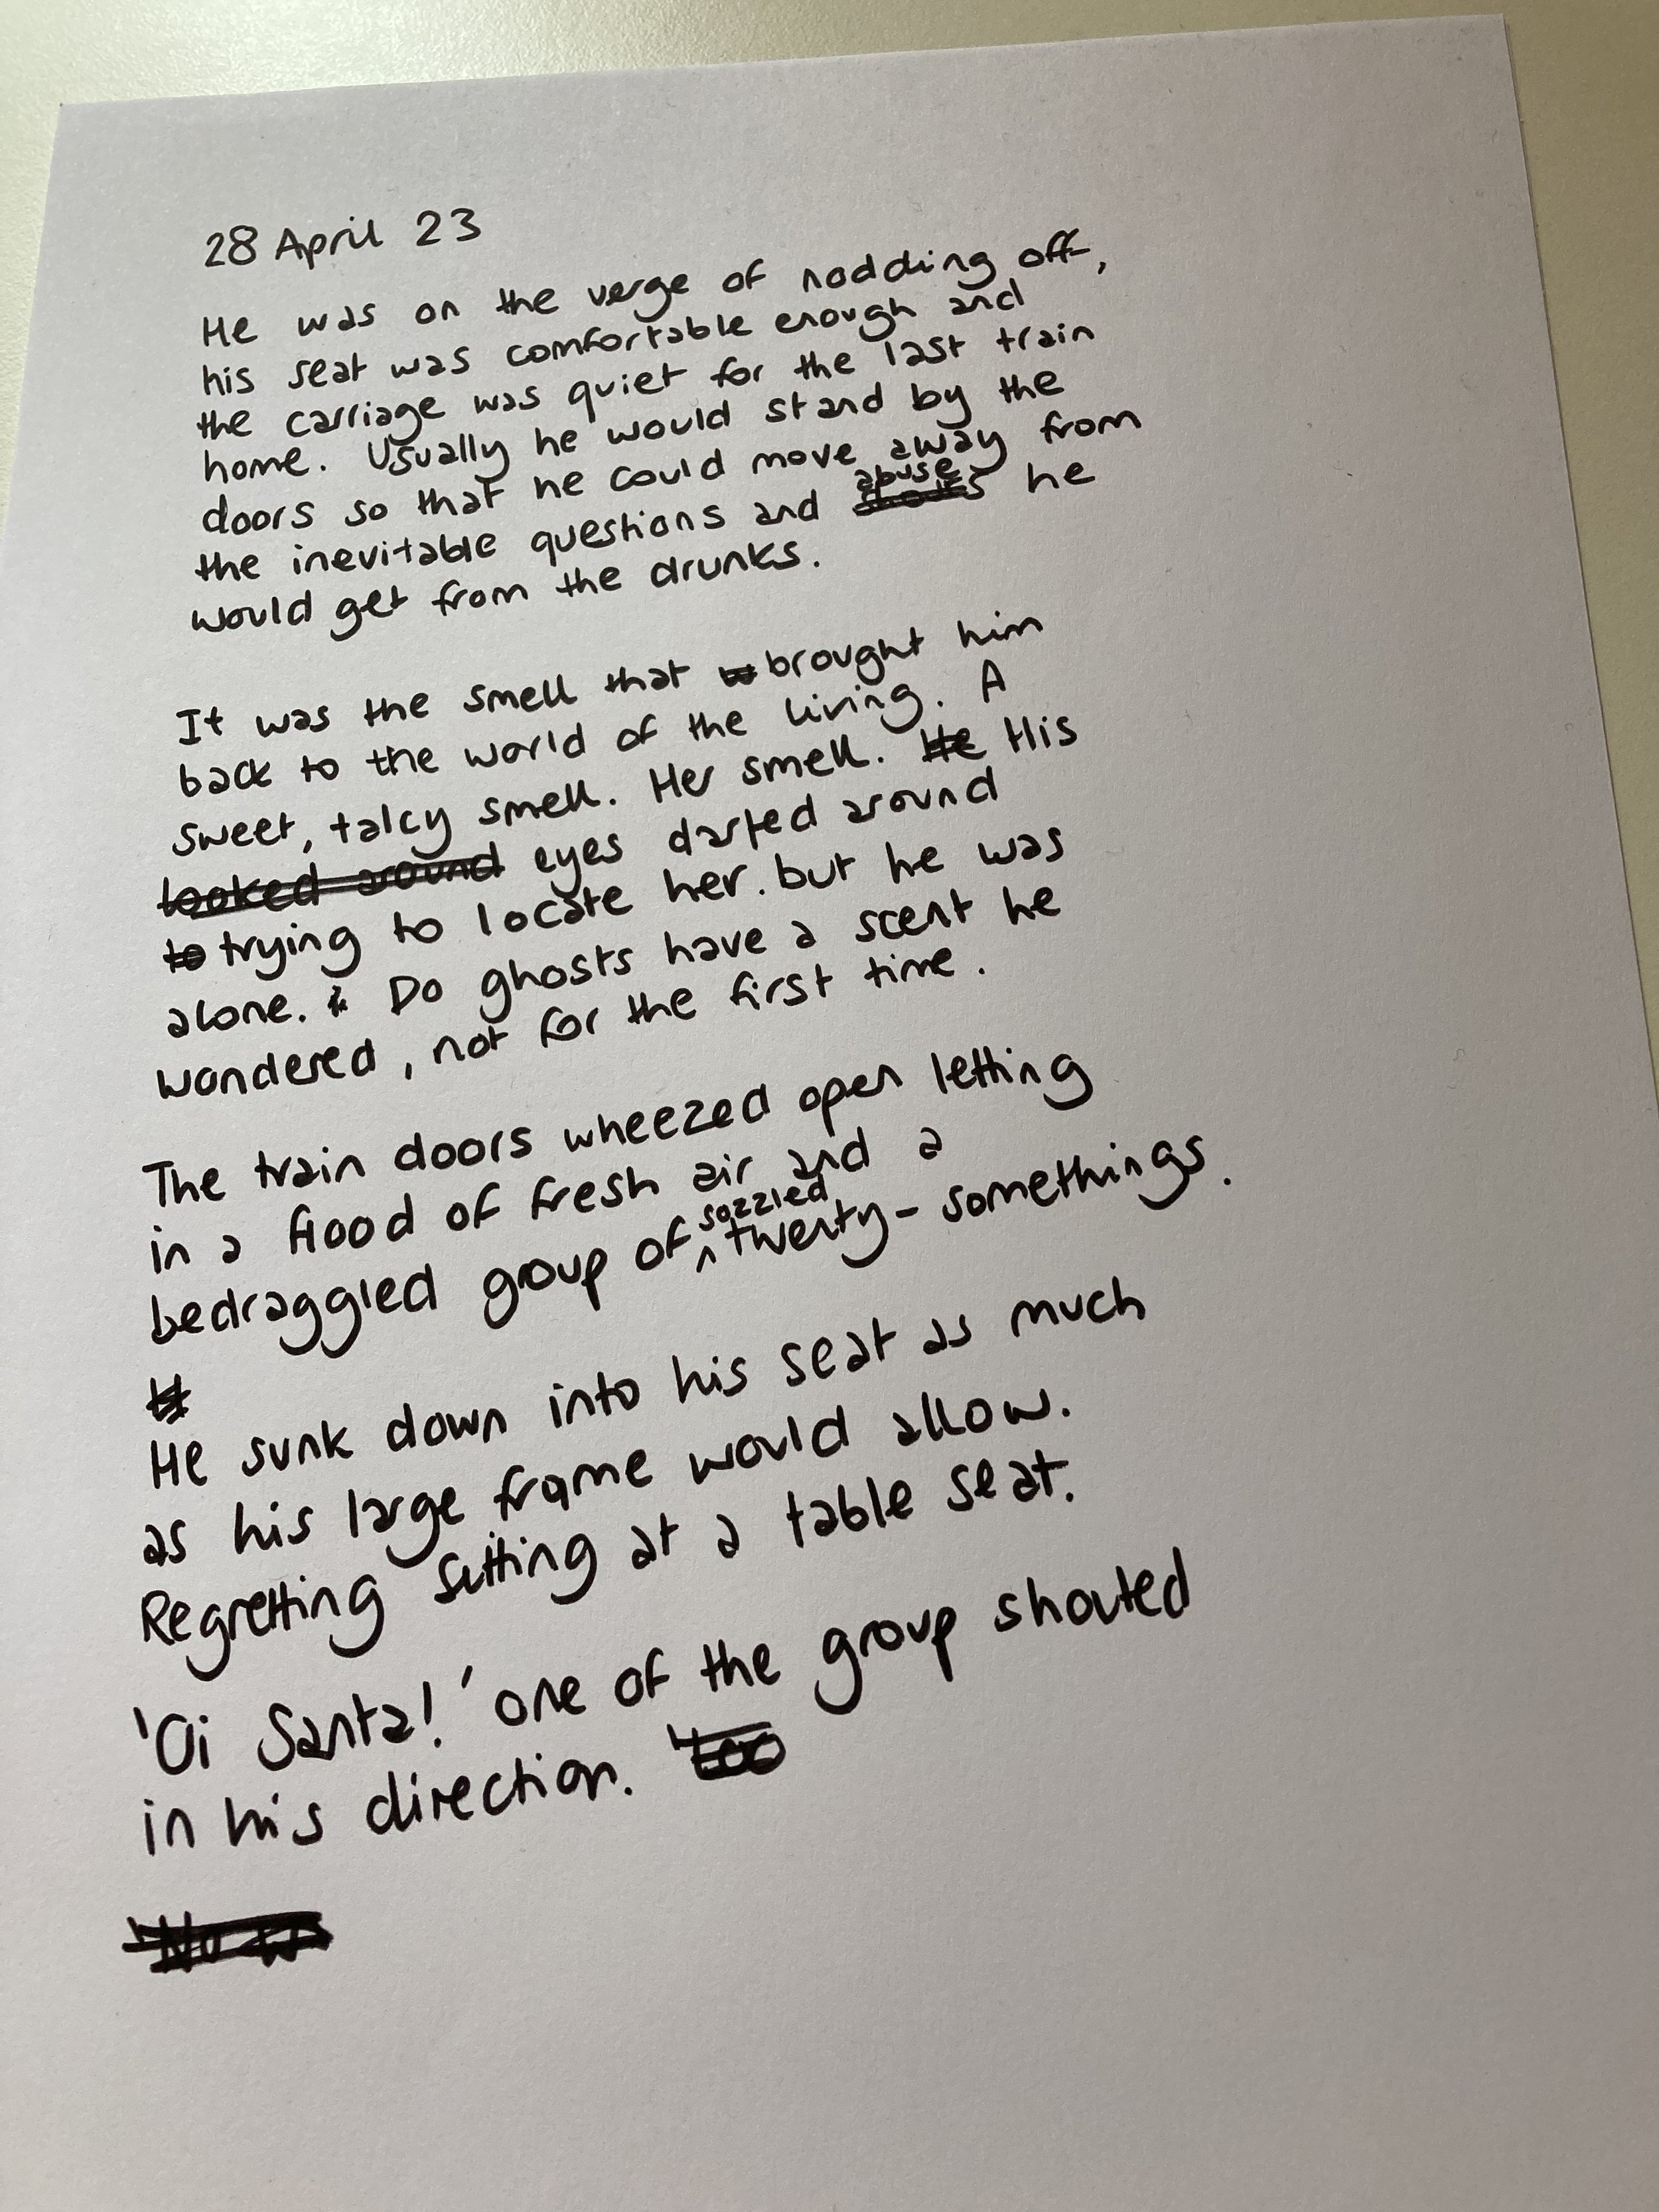 28 April 23
He was on the verge of nodding off,
his seat was comfortable enough and
the carriage was quiet for the last train
home. Usually he would stand by the
doors so that he could move away from
abuse
the inevitable questions and he
would get from the drunks.
It was the smell that brought him
back to the world of the living. A
sweet, talcy smell. Her smell. He His
looked around eyes darted around
to trying to locate her. but he was
alone. Do ghosts have a scent he
wondered, not for the first time.
The train doors wheezed open letting
in a flood of fresh air and a
sozzled
bedraggled group of ^ twenty-somethings.
He sunk down into his seat as much
as his large frame would allow.
Regretting sitting at a table seat.
'Oi Santa!' one of the group shouted
in his direction. 'too